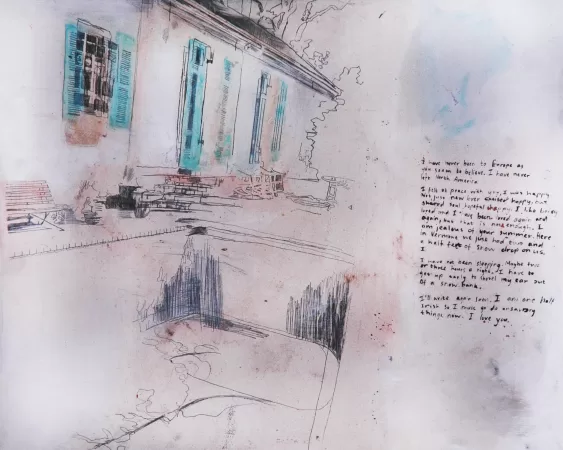 I have never been to Europe as
you seem to believe. I have never
left North America
I felt at peace with you, I was happy
Not just new lover happy, but
shared real happy. I like being
loved and I have been loved again and
again, but that is not enough. I
am jealous of your summer. Here
in Vermont we just had two and
a half feet of snow drop on us.
I
I have not been sleeping. Maybe two
or three hours a night. I have to
get up early to shovel my car out
of a snow bank.
I'll write again soon. I am one half
Irish so I must go do
things now. I love you.